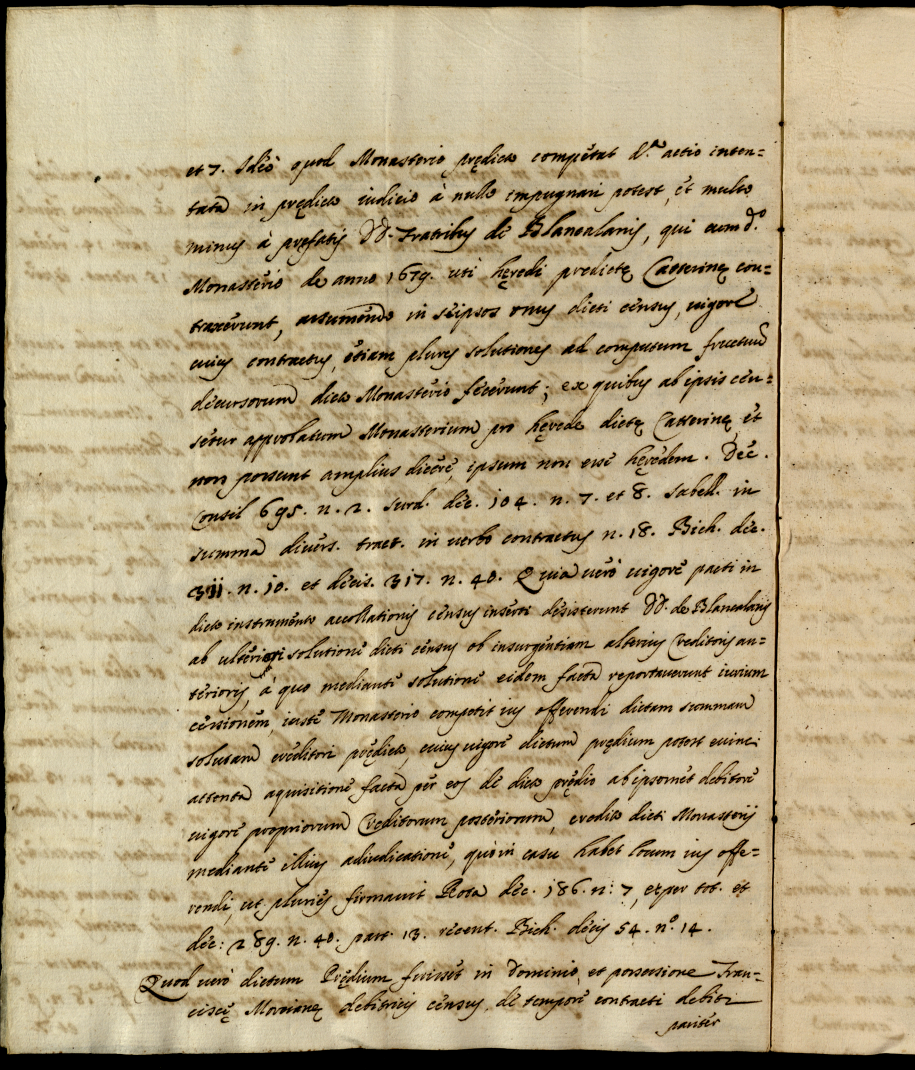 et 7. Ideò quod Monasterio prędicto compètat d.ª actio inten=
tata in prędicto iudicio à nullo impugnari potest, et multo
minus à pręfatis DD. Fratribus de Blancalanis, qui cum d.º
Monasterio de anno 1679. uti hęredi predictę Catterinę con=
traxerunt, assumendo in seipsos onus dicti census, uigore
cuius contractus, etiam plures solutiones ad computum fructuum
decursorum dicto Monasterio fecerunt; ex quibus ab ipsis cen=
setur approbatum Monasterium pro hęrede dictę Catterinę, et
non possunt amplius dicere, ipsum non esse hęredem. Dec.
Consil 695. n. 2. Surd. dec. 104. n. 7. et 8. Sabell. in
summa divers. tract. in uerbo contractus n. 18. Bich. dec.
311. n. 10. et decis. 317. n. 40. Quia uerò uigore pacti in
dicto instrumento accollationis census inserti desisterunt DD. de Blancalanis
ab ulteriori solutione dicti census ob insurgentiam alterius Creditoris an=
terioris, à quo mediante solutione eidem facta reportauerunt iurium
cessionem, iuste Monasterio competit ius offerendi dictam summam
solutam creditori prędicto, cuius uigore dictum prędium potest euinci
attenta aquisitione facta per eos de dicto prędio ab ipsomet debitore
uigore propriorum Creditorum posteriorum, credito dicti Monasterij
mediante illius adiudicatione, quo in casu habet locum ius offe=
rendi, ut pluries firmauit Rota dec. 186. n: 7, et per tot. et
dec: 289. n. 40. part. 13. recent. Bich. decis 54. nº. 14.
Quod uerò dictum Prędium fuisset in dominio, et possessione Fran=
ciscę Morianę debitricis census, de tempore contracti debiti
pariter